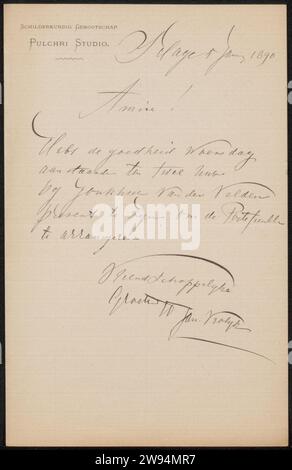 SCHILDERKUNDIG GENOOTSCHAP
PULCHRI STUDIO.
'sHage 5 Jan 1890
Amice!
Hebt de goedheid Woensdag
aanstaande ten twee ure
by Jonkheer Van der Velden
present te zyn om de Portefeuille
te arrangeren
Vriendschappelyke
Groete
Jan Vrolyk
alamy
Image ID: 2W94MR7
www.alamy.com